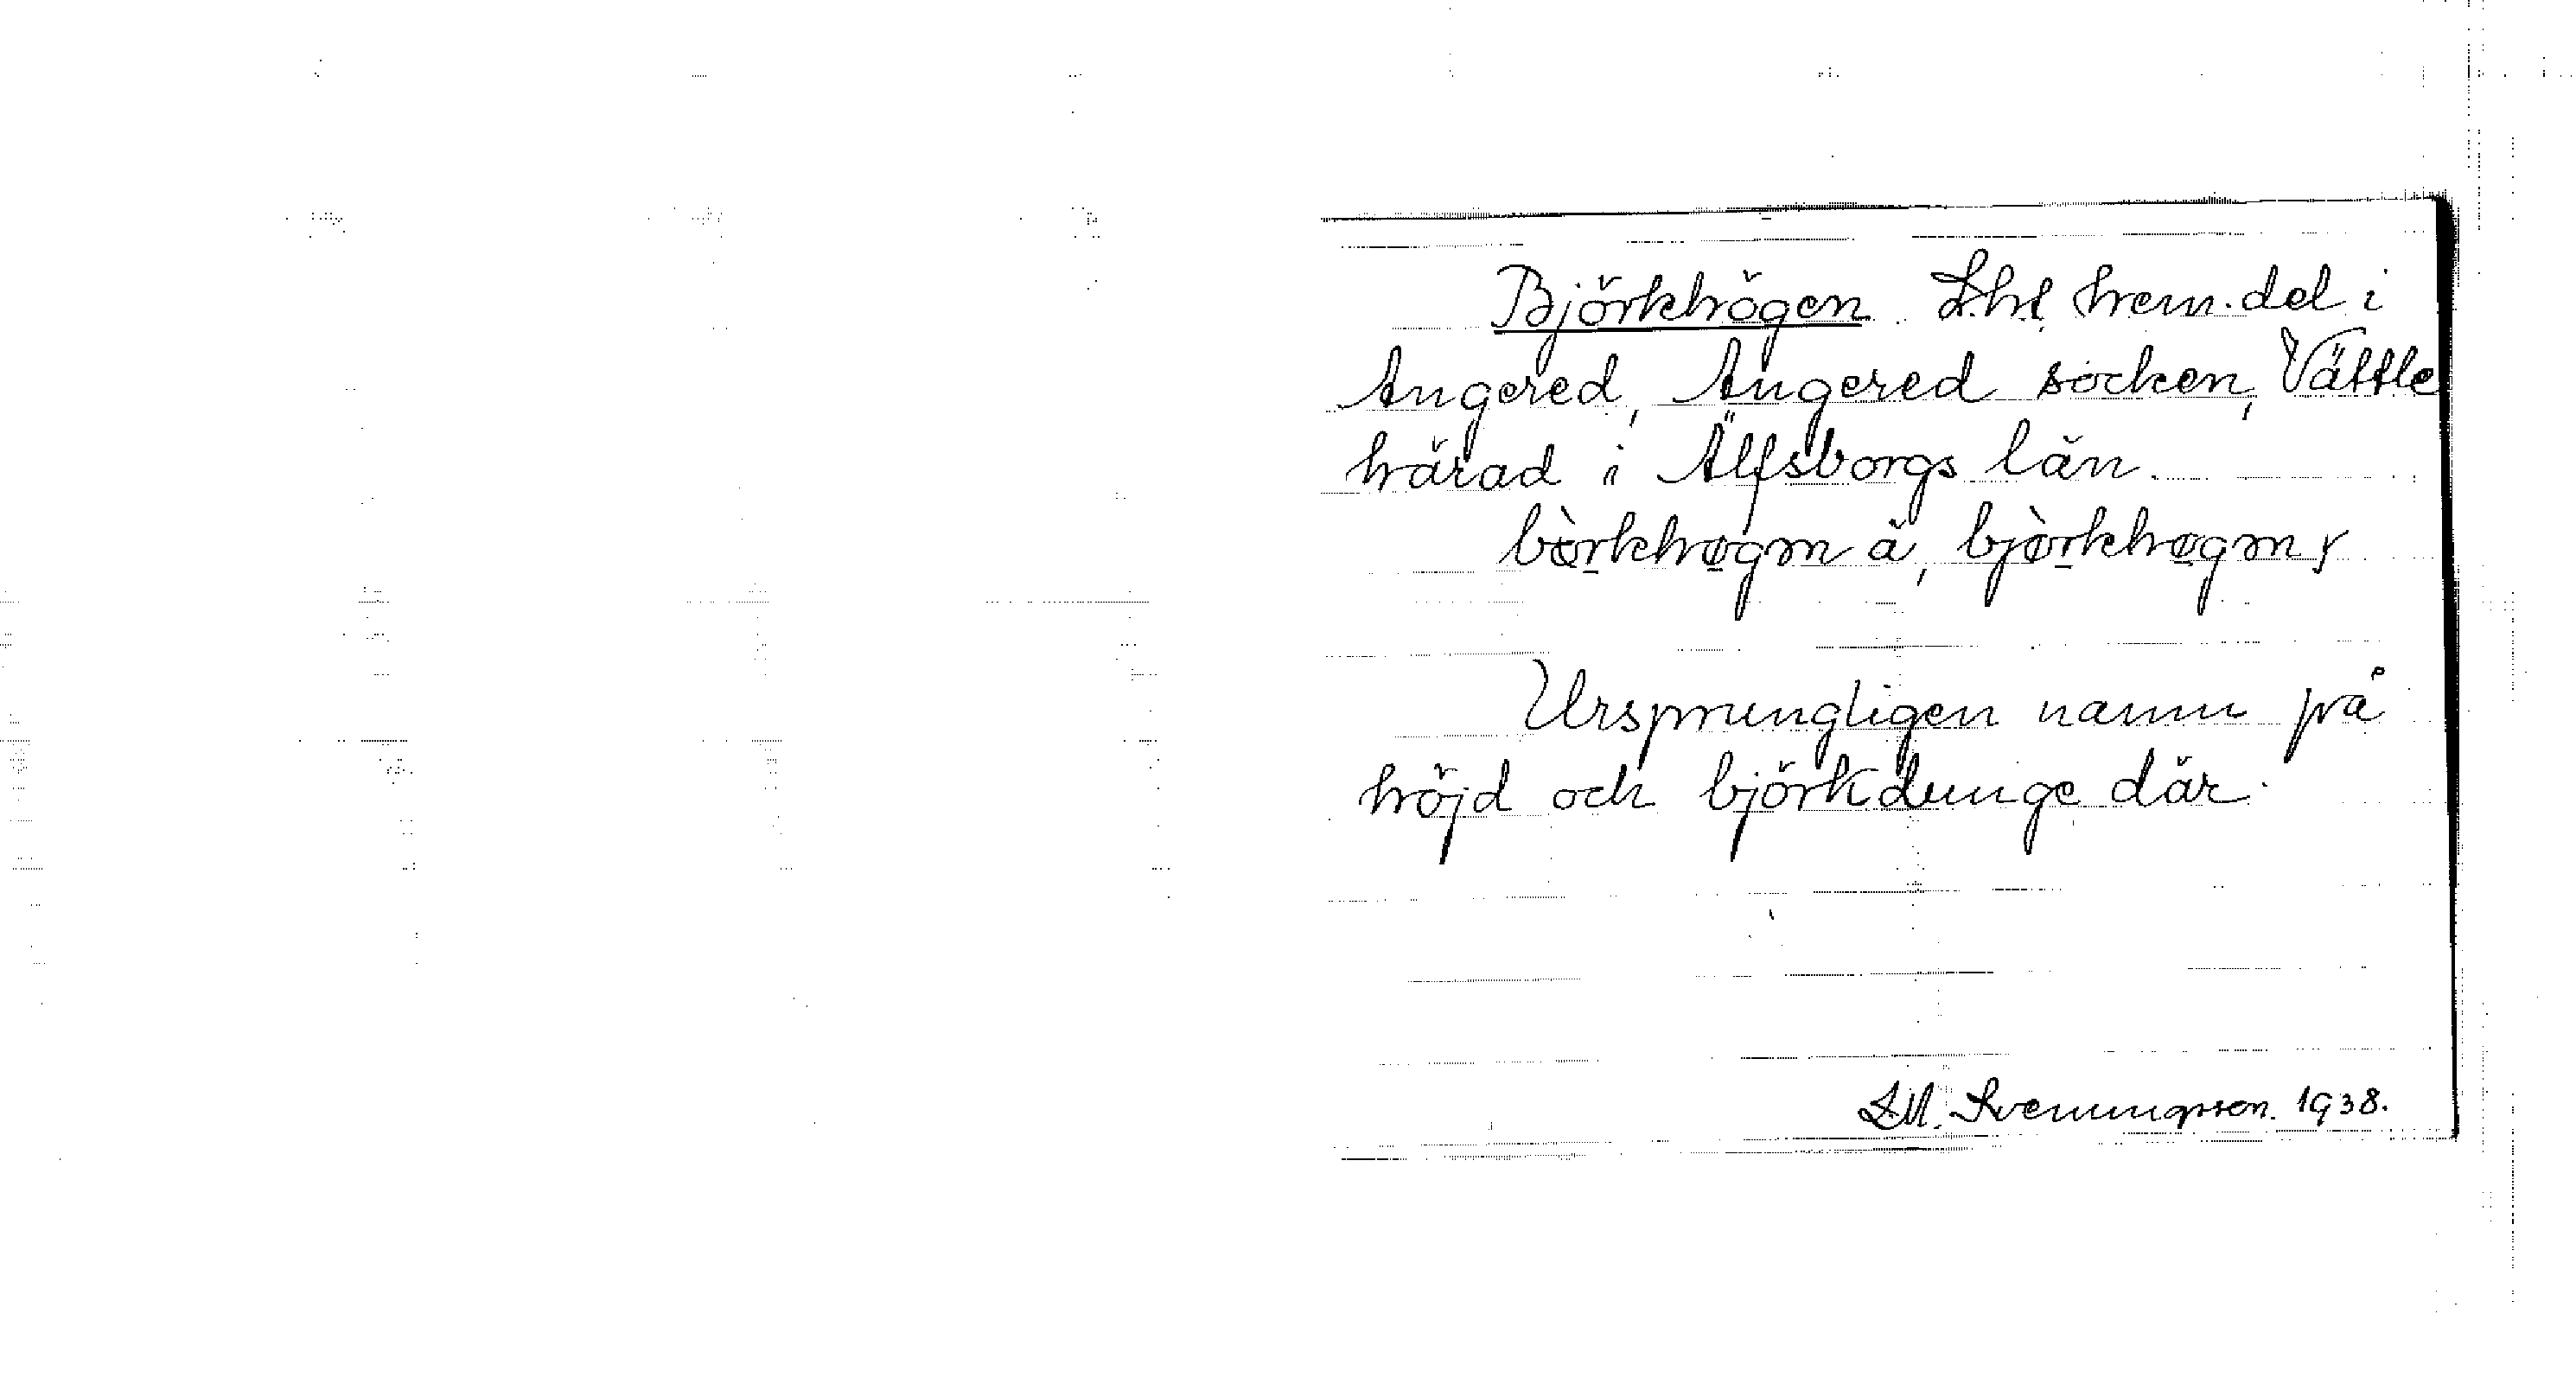 Björkhögen Lht, hem. del i
Angered, Angered socken, Vättle
härad i Älfsborgs län.
bjørkhøgən y
Ursprungligen namn på
höjd och björkdunge där.
S.M. Svenungsson. 1938.